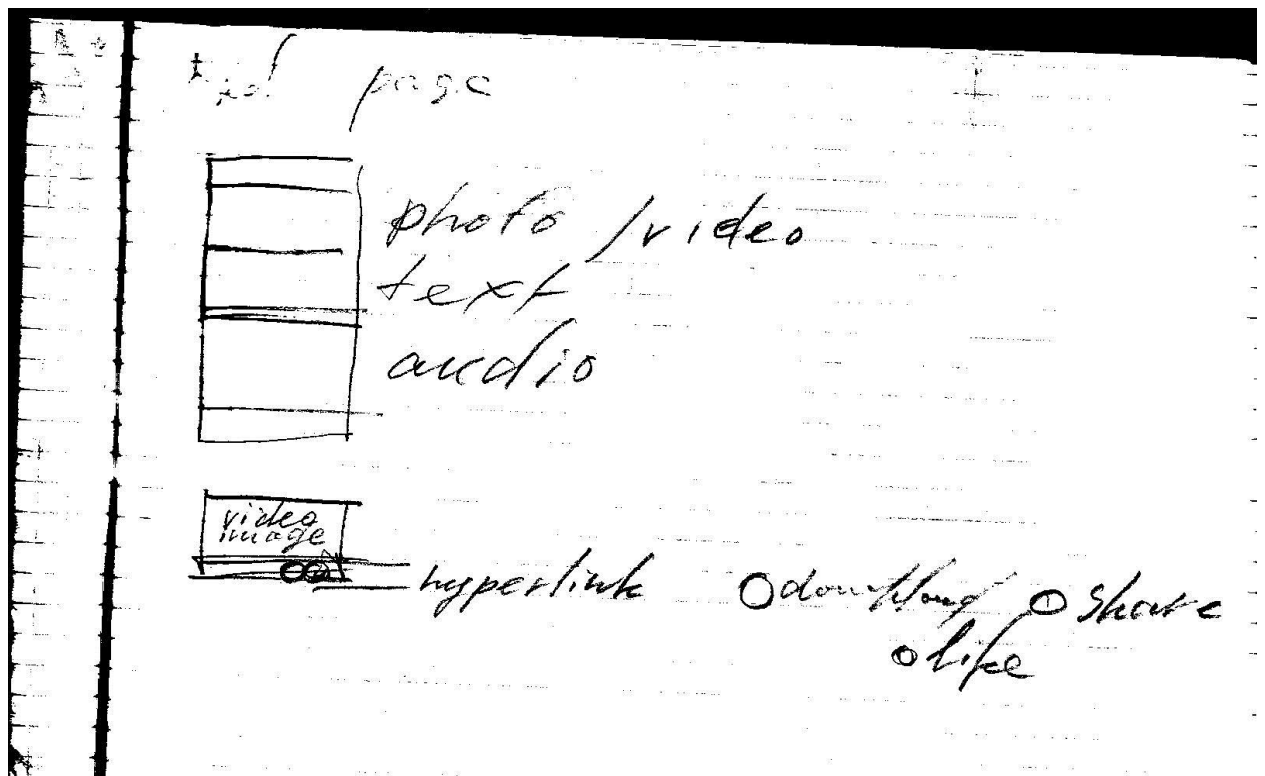 page
photo / video
text
audio
video
image
hyperlink
download
share
like